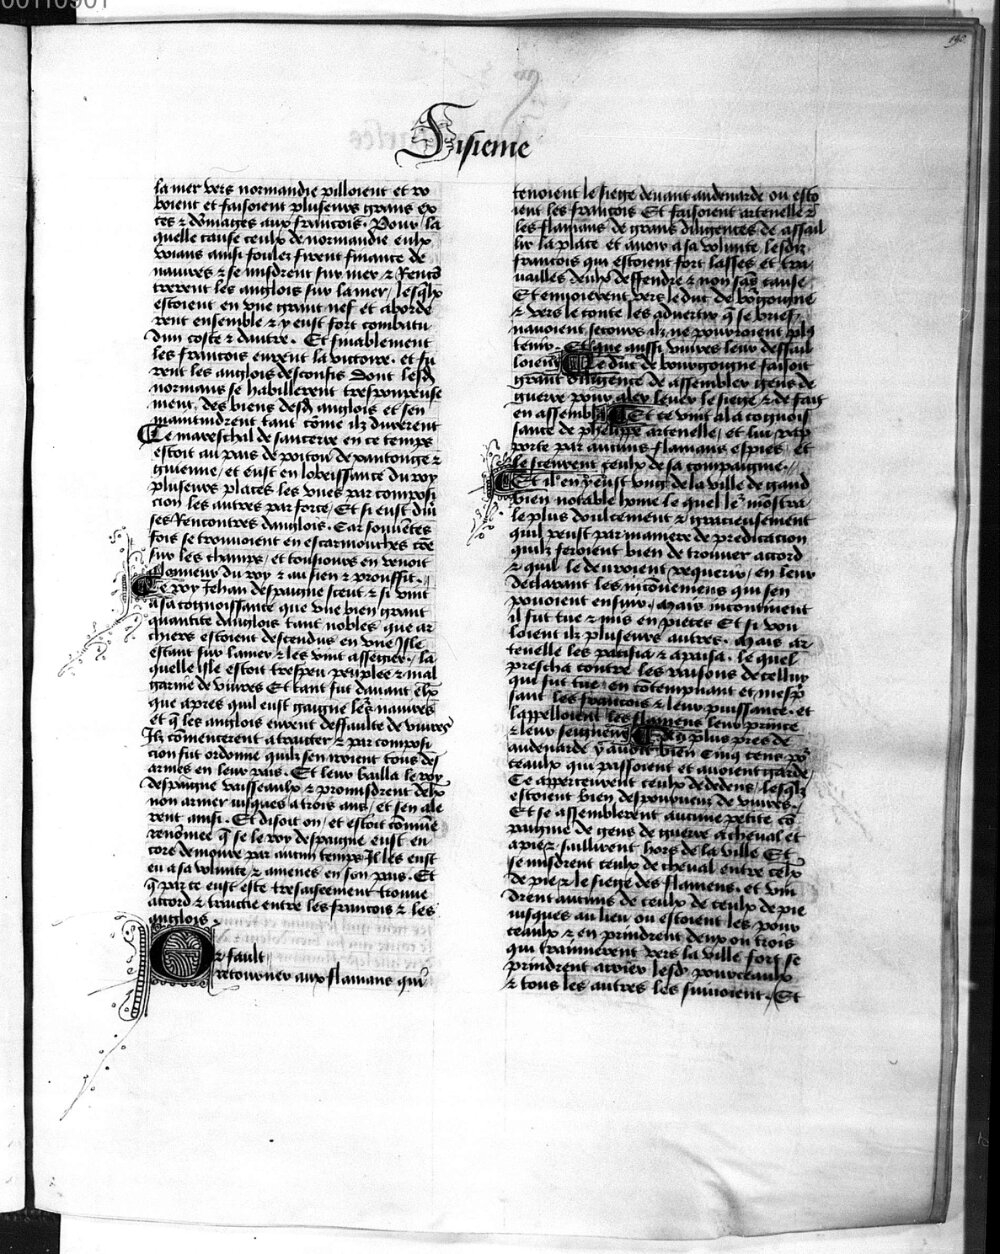 00110901
190
Sisieme
la mer vers normandie pilloient et ro
boient et faisoient plusieurs grans ex
ces ⁊ dōmages aux francois. Pour la
quelle cause ceulx de normandie eulx
voians ainsi foulez firent finance de
nauires ⁊ se misdrent sur mer ⁊ Rencō
trerent les anglois sur la mer / lesqlx
estoient en vne grant nef et aborde
rent ensemble ⁊ y eust fort combatu
dun coste ⁊ dautre. Et finablement
les francois eurent la victoire. et fu
rent les anglois desconfis Dont lesd
normans se habillerent tresponpeuse
ment. des biens desd anglois et sen
maintindrent tant cōme ilz durerent
Le mareschal de sancerre en ce temps
estoit au pais de poitou de xantonge ⁊
guienne / et eust en lobeissance du roy
plusieurs places les vnes par composi
cion les autres par force / Et si eust diu
ses Rencontres danglois. Car souuētes
fois se trouuoient en escarmouches cōe
sur les champs / et tousiours en venoit
lonneur du roy ⁊ au sien ⁊ prouffit.
Le roy Jehan despaigne sceut ⁊ si vint
a sa cognoissance que vne bien grant
quantite danglois tant nobles que ar
chiers estoient descendus en vne Isle
estant sur la mer ⁊ les vint assegier. la
quelle isle estoit trespeu peuplee ⁊ mal
garnie de viures Et tant fut dauant elx
que apres quil eust gaigne les nauires
et q les anglois eurent deffaulte de viures
Ilz cōmencerent a traicter ⁊ par composi
cion fut ordonne quilz sen yroient tous des
armes en leur pais. Et leur bailla le roy
despaigne vaisseaulx ⁊ promisdrent deulx
non armer iusques a trois ans / et sen ale
rent ainsi. Et disoit on / et estoit cōmune
renōmee q se le roy despaigne eust en
core demoure par aucun temps Il les eust
eu a sa volunte ⁊ amenes en son pais. Et
q par ce eust este tresaiseement trouue
accord ⁊ traictie entre les francois ⁊ les
anglois.
Or fault
retourner aux flamans qui
tenoient le siege deuant audenarde ou esto
ient les francois Et faisoient artenelle ⁊
les flamans de grans diligences de assail
lir la place et auoir a sa volunte lesdiz
francois qui estoient fort lasses et tra
uailles deulx deffendre ⁊ non sās cause
Et enuoierent vers le duc de bourgoigne
⁊ vers le conte les aduertir q se briefz
nauoient secours ilz ne pourroient plus
tenir. Et que aussi viures leur deffail
loient Le duc de bourgoigne faisoit
grant diligence de assembler gens de
guerre pour aler leuer le siege ⁊ de fait
en assembla Et ce vint a la cognois
sance de phelippe artenelle / et lui rap
porte par aucuns flamans espies / et
le sceurent ceulx de sa compaignie.
Et il en y eust vng de la ville de gand
bien notable hōme le quel les mōstra
le plus doulcement ⁊ gracieusement
quil peust par maniere de predicacion
quilz feroient bien de trouuer accord
⁊ quil le deuroient requerir / en leur
declarant les inconueniens qui sen
pouoient ensuir. Mais incontinent
il fut tue ⁊ mis en pieces Et si vou
loient ilz plusieurs autres. Mais ar
tenelle les patisia ⁊ apaisa. le quel
prescha contre les raisons de celluy
qui fut tue / en cōtempnant et mesp
sant les francois ⁊ leur puissance. et
lappelloient les flamens leur prince
⁊ leur seigneur Et plus pres de
audenarde y auoit bien cinq cens po
ceaulx qui passoient et auoient garde
Ce apperceurent ceulx dedens / lesqlz
estoient bien despourueuz de viures.
Et se assemblerent aucune petite cō
paignie de gens de guerre a cheual et
a pie ⁊ saillirent hors de la ville Et
se misdrent ceulx de cheual entre celx
de pie ⁊ le siege des flamens. et vin
drent aucuns de ceulx de ceulx de pie
iusques au lieu ou estoient les pour
ceaulx ⁊ en prindrent deux ou trois
qui trainnerent vers la ville fort se
prindrent a crier lesd pourceaulx
⁊ tous les autres les suiuoient. Et